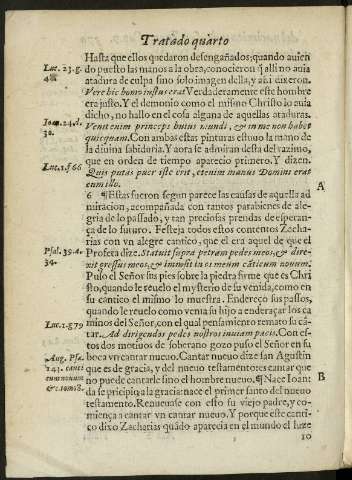 Tratado quarto
Hasta que ellos quedaron desengañados; quando auien
Luc. 23. g.
4
do puesto las manos à la obra, conocieron q̃ alli no auia
atadura de culpa sino solo imagen della, y así dixeron.
Vere hic homo iustus erat Verdaderamente este hombre
era justo. Y el demonio como el mismo Christo lo auia
dicho, no hallo en el cosa alguna de aquellas ataduras.
Ioan. 14. d.
30.
Venit enim princeps huius mundi, & in me non habet
quicquam. Con ambas estas pinturas estuuo la mano de la
diuina sabiduria. Y aora se admiran desta del razimo,
que en orden de tiempo aparecio primero. Y dizen.
Luc. 1. f 66
Quis putas puer iste erit, etenim manus Domini erat
cum illo.
A
6 ¶Estas fueron segun parece las causas de aquella ad
miracion, acompañada con tantos parabienes de ale-
gria de lo passado, y tan preciosas prendas de esperan-
ça de lo futuro. Festeja todos estos contentos Zacha-
rias con vn alegre cantico, que el era aquel de que el
Psal. 39. a.
3 4.
Profeta dize. Statuit supra petram pedes meos, & dire-
xit gressus meos, & immisit in os meum cãticum nouum.
Puso el Señor sus pies sobre la piedra firme que es Chri
sto, quando le reuelo el mysterio de su venida, como en
su cantico el mismo lo muestra. Endereço sus passos,
quando le reuelo como venia su hijo a enderaçar los ca
Luc. 1. g 79
minos del Señor, con el qual pensamiento remato su cã-
tar. Ad dirigendos pedes nostros in viam pacis. Con es-
tos dos motiuos de soberano gozo puso el Señor en su
Aug. Psa.
143. canti
cum nouum
& c. tom. 8.
boca vn cantar nueuo. Cantar nueuo dize san Agustin
que es de gracia, y del nueuo testamento: es cantar que
no puede cantarle sino el hombre nueuo. ¶ Nace Ioan
B
da se pricipio a la gracia: nace el primer santo del nueuo
testamento. Renueuase con esto su viejo padre, y co-
miença a cantar vn cantar nueuo. Y porque este canti-
co dixo Zacharias quãdo aparecia en el mundo el luze
10